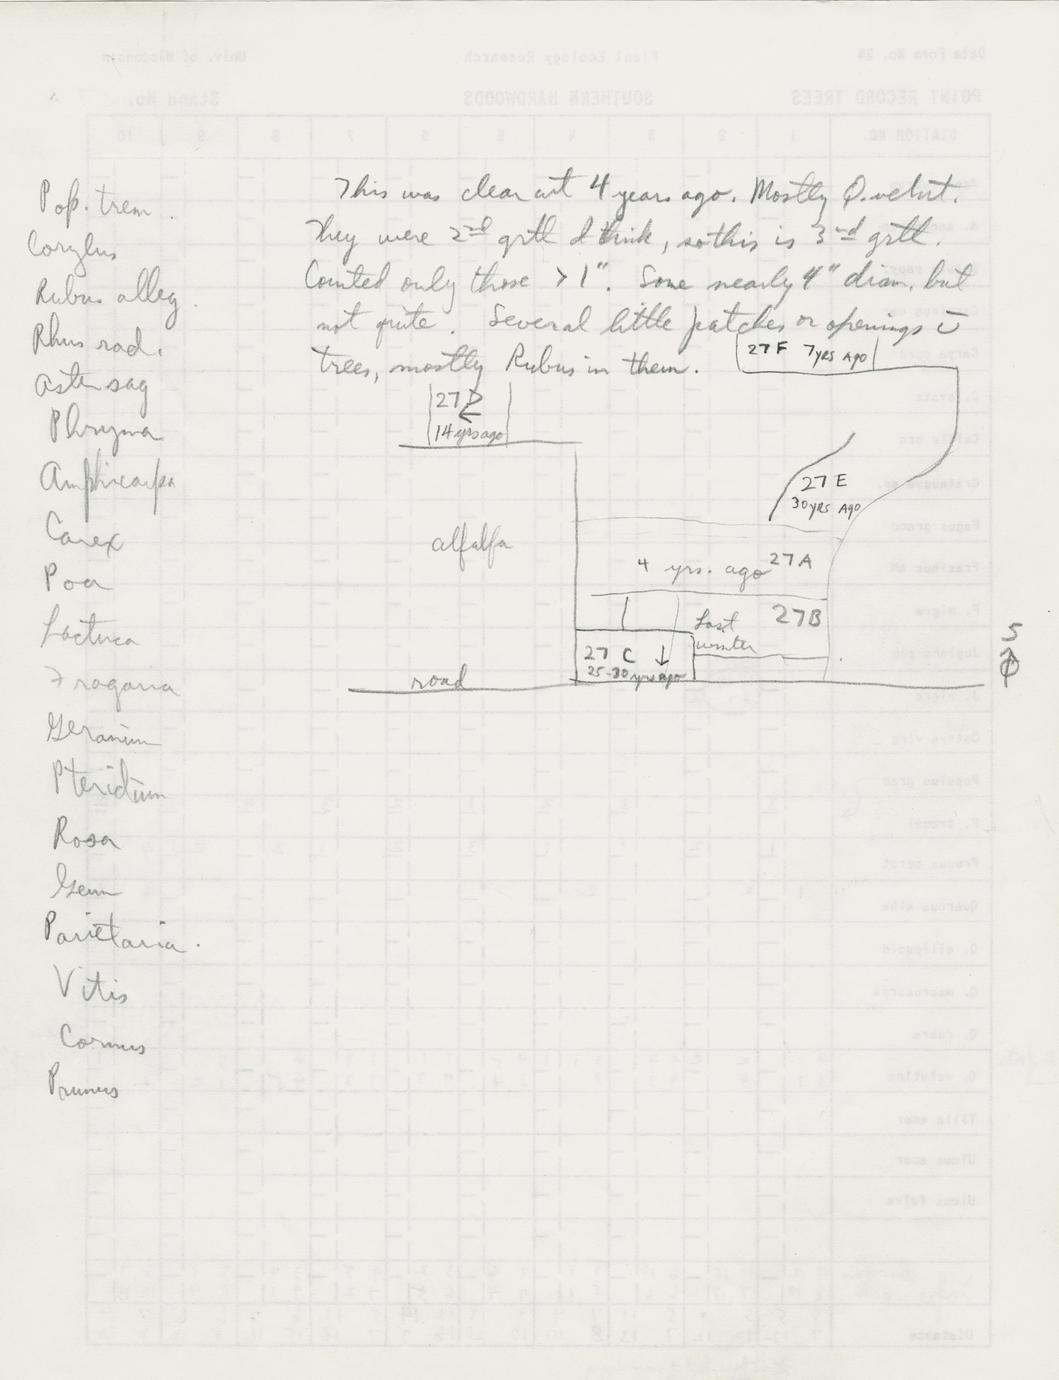 This was clear cut 4 years ago. Mostly Q. velut.
They were 2nd grth I think, so this is 3rd grth.
Counted only those > 1". Some nearly 4" diam. but
not quite. Several little patches or openings c̄
trees, mostly Rubus in them.
Pop. trem.
Corylus
Rubus alleg.
Rhus rad.
Aster sag
Phryma
Amphicarpa
Carex
Poa
Lactuca
Fragaria
Geranium
Pteridium
Rosa
Geum
Parietaria.
Vitis
Cornus
Prunus
27 F 7 yrs Ago
27 D
14 yrs ago
27 E
30 yrs Ago
alfalfa
4 yrs. ago 27A
Last 27B
winter
27 C
25-30 yrs ago
road
S